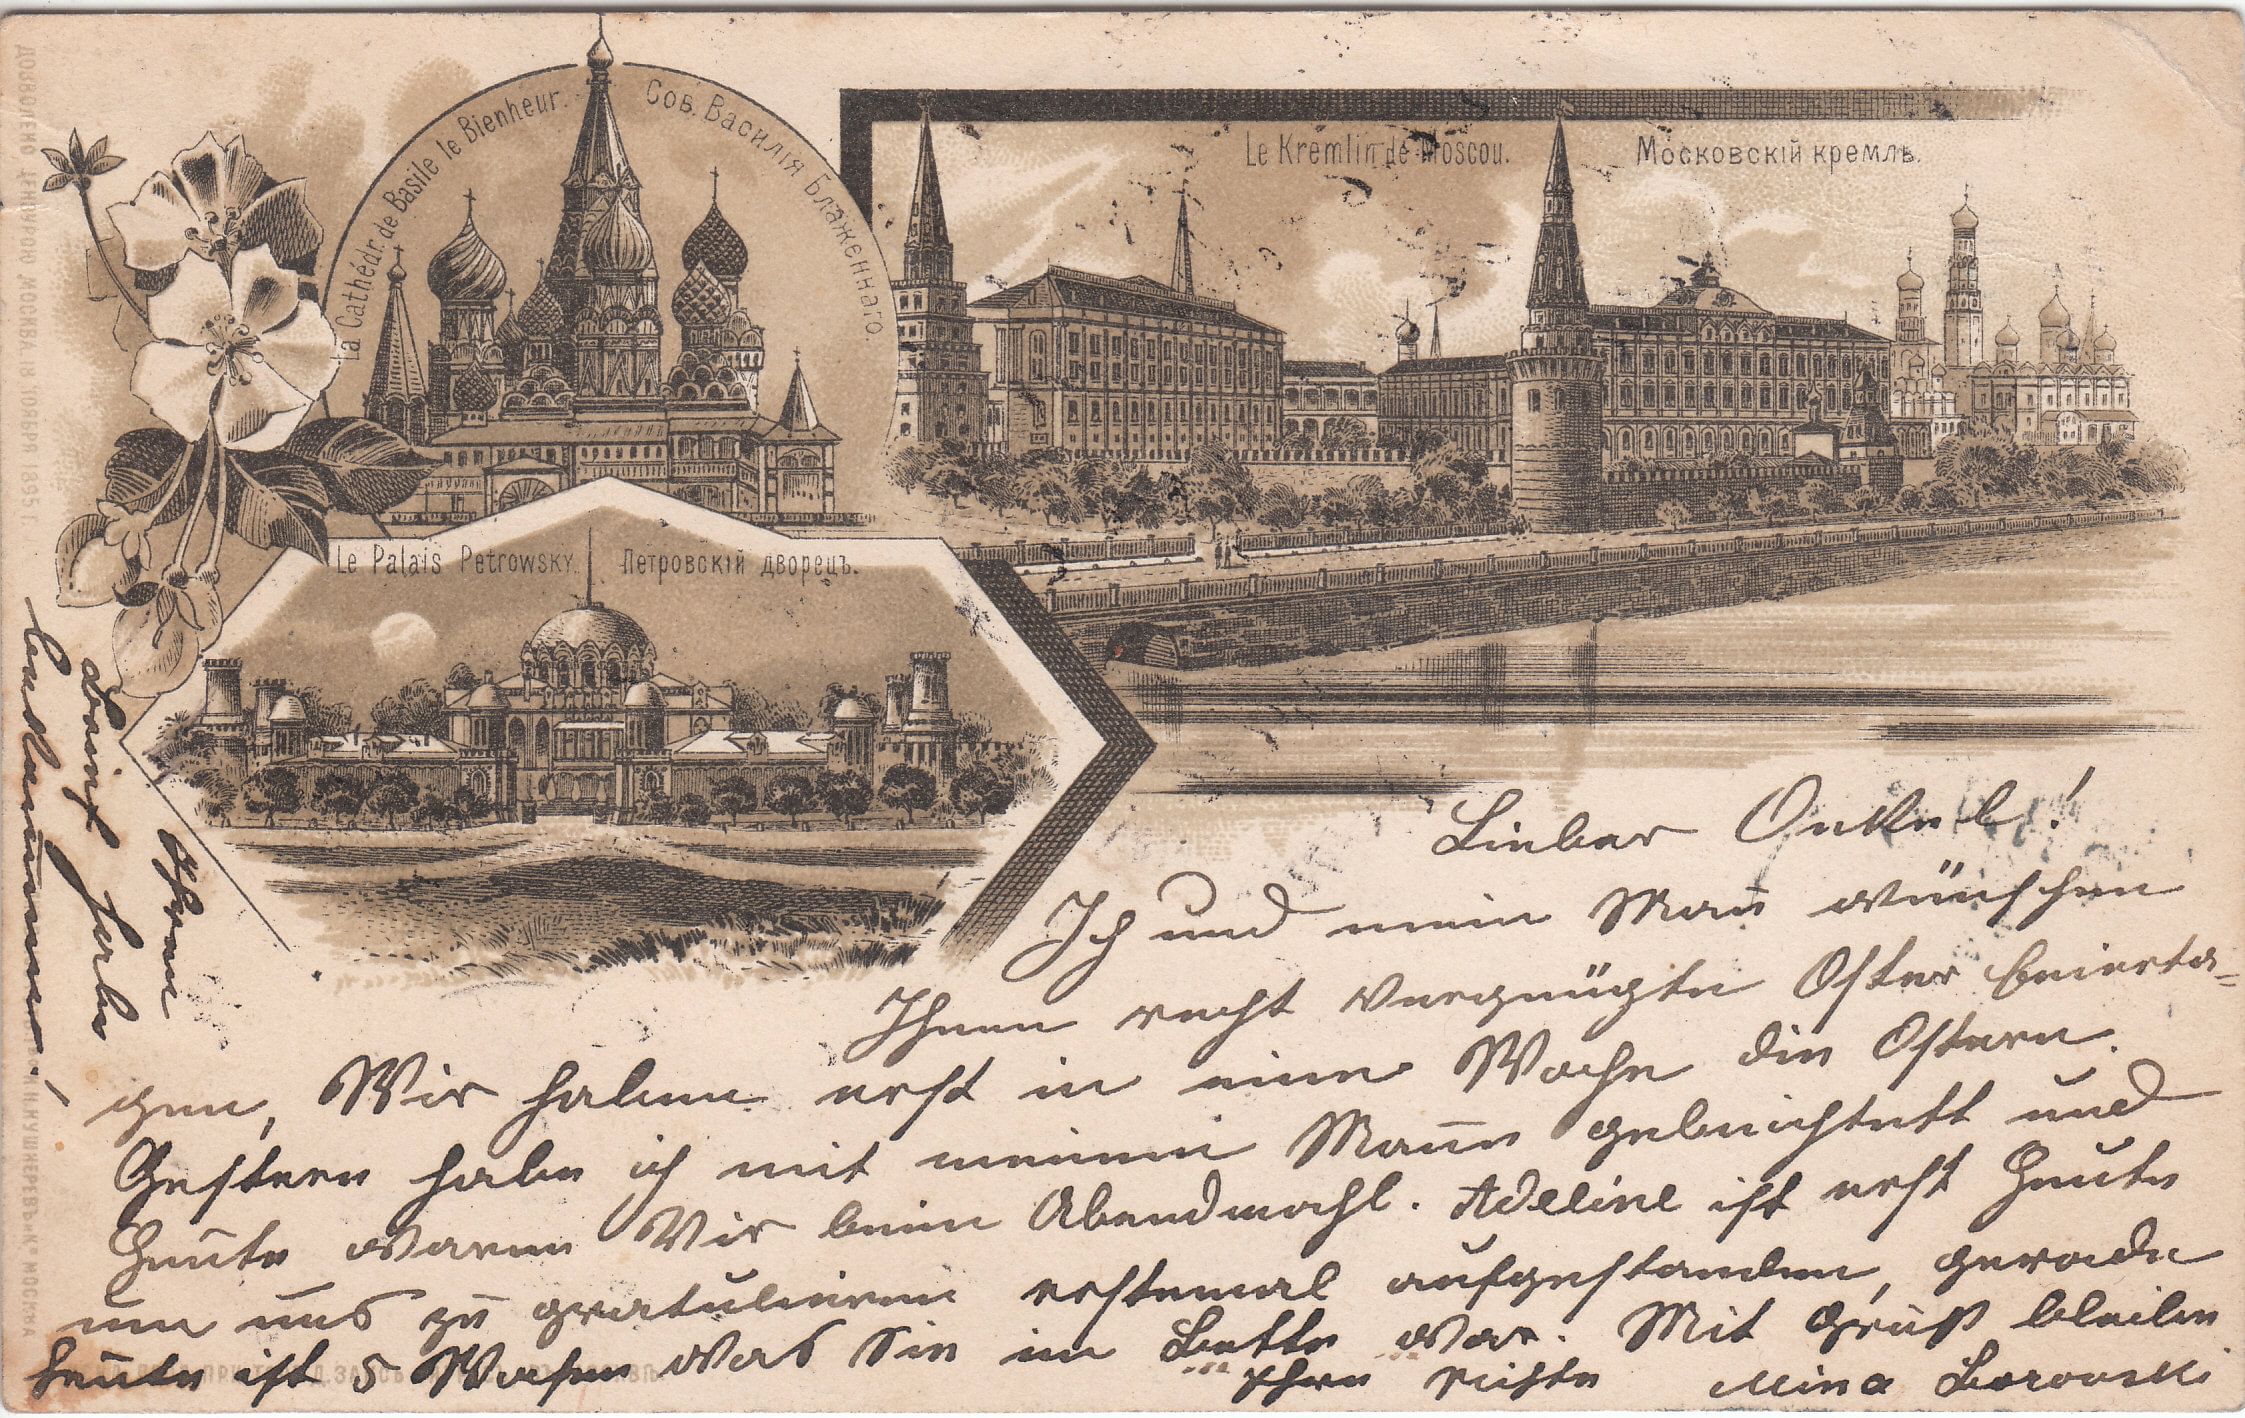 La Cathédr. de Basile le Bienheur.
Соб. Василія Блаженнаго.
Le Kremlin de Moscou.
Московскій кремль.
Le Palais Petrowsky.
Петровскій дворецъ.
Дозволено цензурою Москва
ноября 1895
Кушнеревъ и Кº Москва
Lieber Onkel!
Ich und mein Man̄ wünschen
Ihnen recht vergnügte Oster feierta-
gen, Wir haben erst in eine Woche die Ostern.
Gestern habe ich mit meinem Man̄e gebeichtett und
Heute waren Wir beim Abendmahl. Adeline ist erst Heute
um uns zu gratulieren erstemal aufgestanden, gerade
heute ist 5 Wochen was Sie im Bette war. Mit Gruß bleibe
Ihre Nichte Mina Borowski